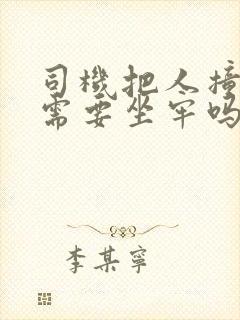 司機把人撞
需要坐牢吗
李某寧